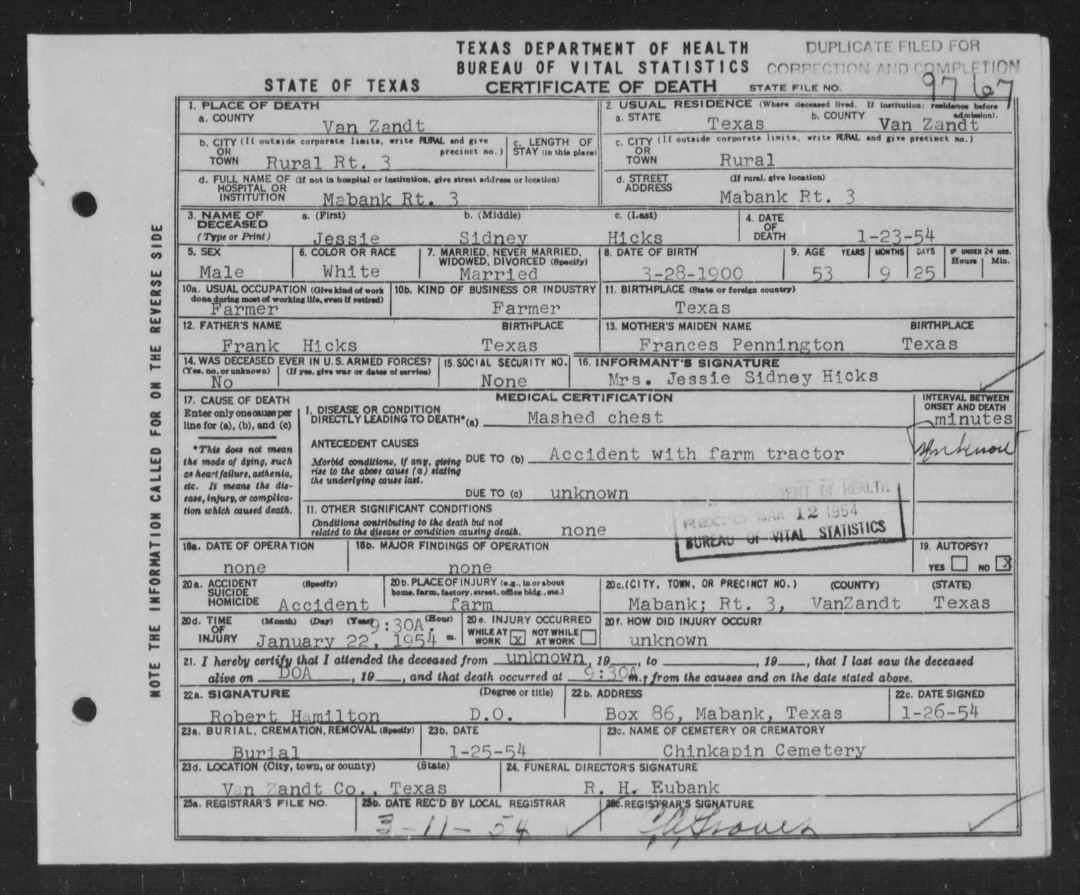 TEXAS DEPARTMENT OF HEALTH
BUREAU OF VITAL STATISTICS
DUPLICATE FILED FOR
CORRECTION AND COMPLETION
STATE OF TEXAS CERTIFICATE OF DEATH STATE FILE NO. 9767
NOTE THE INFORMATION CALLED FOR ON THE REVERSE SIDE
1. PLACE OF DEATH
a. COUNTY
Van Zandt
2. USUAL RESIDENCE (Where deceased lived. If institution: residence before admission).
a. STATE Texas b. COUNTY Van Zandt
b. CITY (If outside corporate limits, write RURAL and give precinct no.)
OR
TOWN Rural Rt. 3
c. LENGTH OF
STAY (in this place)
c. CITY (If outside corporate limits, write RURAL and give precinct no.)
OR
TOWN Rural
d. FULL NAME OF (If not in hospital or institution, give street address or location)
HOSPITAL OR
INSTITUTION Mabank Rt. 3
d. STREET (If rural, give location)
ADDRESS Mabank Rt. 3
3. NAME OF a. (First) b. (Middle) c. (Last)
DECEASED
(Type or Print) Jessie Sidney Hicks
4. DATE
OF
DEATH 1-23-54
5. SEX
Male
6. COLOR OR RACE
White
7. MARRIED, NEVER MARRIED,
WIDOWED, DIVORCED (Specify)
Married
8. DATE OF BIRTH
3-28-1900
9. AGE YEARS MONTHS DAYS IF UNDER 24 HRS.
Hours Min.
53 9 25
10a. USUAL OCCUPATION (Give kind of work
done during most of working life, even if retired)
Farmer
10b. KIND OF BUSINESS OR INDUSTRY
Farmer
11. BIRTHPLACE (State or foreign country)
Texas
12. FATHER'S NAME BIRTHPLACE
Frank Hicks Texas
13. MOTHER'S MAIDEN NAME BIRTHPLACE
Frances Pennington Texas
14. WAS DECEASED EVER IN U.S. ARMED FORCES?
(Yes, no, or unknown) (If yes, give war or dates of service)
No
15. SOCIAL SECURITY NO.
None
16. INFORMANT'S SIGNATURE
Mrs. Jessie Sidney Hicks
17. CAUSE OF DEATH
Enter only one cause per
line for (a), (b), and (c)
*This does not mean
the mode of dying, such
as heart failure, asthenia,
etc. It means the dis-
ease, injury, or complica-
tion which caused death.
MEDICAL CERTIFICATION
I. DISEASE OR CONDITION
DIRECTLY LEADING TO DEATH*(a) Mashed chest
INTERVAL BETWEEN
ONSET AND DEATH
minutes
ANTECEDENT CAUSES
Morbid conditions, if any, giving
rise to the above cause (a) stating
the underlying cause last.
DUE TO (b) Accident with farm tractor
DUE TO (c) unknown
II. OTHER SIGNIFICANT CONDITIONS
Conditions contributing to the death but not
related to the disease or condition causing death. none
OF HEALTH
REC'D MAR 12 1954
BUREAU OF VITAL STATISTICS
18a. DATE OF OPERATION
none
18b. MAJOR FINDINGS OF OPERATION
none
19. AUTOPSY?
YES NO X
20a. ACCIDENT (Specify)
SUICIDE
HOMICIDE Accident
20b. PLACE OF INJURY (e.g., in or about
home, farm, factory, street, office bldg., etc.)
farm
20c. (CITY, TOWN, OR PRECINCT NO.) (COUNTY) (STATE)
Mabank; Rt. 3, VanZandt Texas
20d. TIME (Month) (Day) (Year) (Hour)
OF 9:30A.
INJURY January 22, 1954 m.
20e. INJURY OCCURRED
WHILE AT WORK X NOT WHILE AT WORK
20f. HOW DID INJURY OCCUR?
unknown
21. I hereby certify that I attended the deceased from unknown, 19__, to ____, 19__, that I last saw the deceased
alive on DOA, 19__, and that death occurred at 9:30A m., from the causes and on the date stated above.
22a. SIGNATURE (Degree or title)
Robert Hamilton D.O.
22b. ADDRESS
Box 86, Mabank, Texas
22c. DATE SIGNED
1-26-54
23a. BURIAL, CREMATION, REMOVAL (Specify)
Burial
23b. DATE
1-25-54
23c. NAME OF CEMETERY OR CREMATORY
Chinkapin Cemetery
23d. LOCATION (City, town, or county) (State)
Van Zandt Co., Texas
24. FUNERAL DIRECTOR'S SIGNATURE
R. H. Eubank
25a. REGISTRAR'S FILE NO.
25b. DATE REC'D BY LOCAL REGISTRAR
3-11-54
25c. REGISTRAR'S SIGNATURE